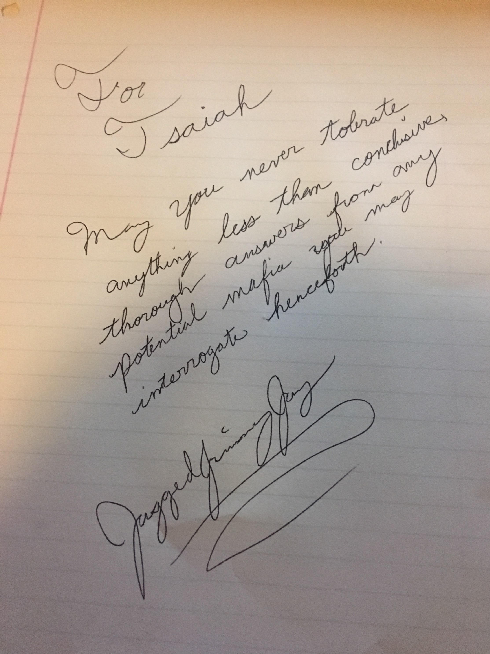 For
Isaiah
May you never tolerate
anything less than conclusive,
thorough answers from any
potential mafia you may
interrogate henceforth.
JaggedJimmyJay